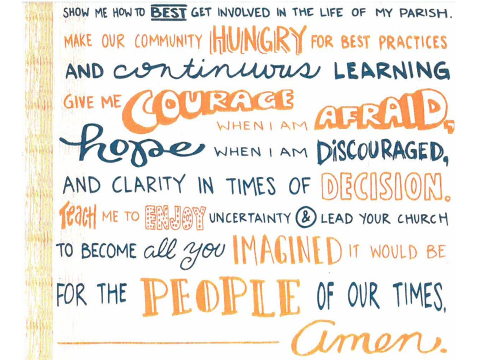 SHOW ME HOW TO BEST GET INVOLVED IN THE LIFE OF MY PARISH.
MAKE OUR COMMUNITY HUNGRY FOR BEST PRACTICES
AND continuous LEARNING
GIVE ME COURAGE WHEN I AM AFRAID,
hope WHEN I AM DISCOURAGED,
AND CLARITY IN TIMES OF DECISION.
Teach ME TO ENJOY UNCERTAINTY & LEAD YOUR CHURCH
TO BECOME all you IMAGINED IT WOULD BE
FOR THE PEOPLE OF OUR TIMES,
amen.